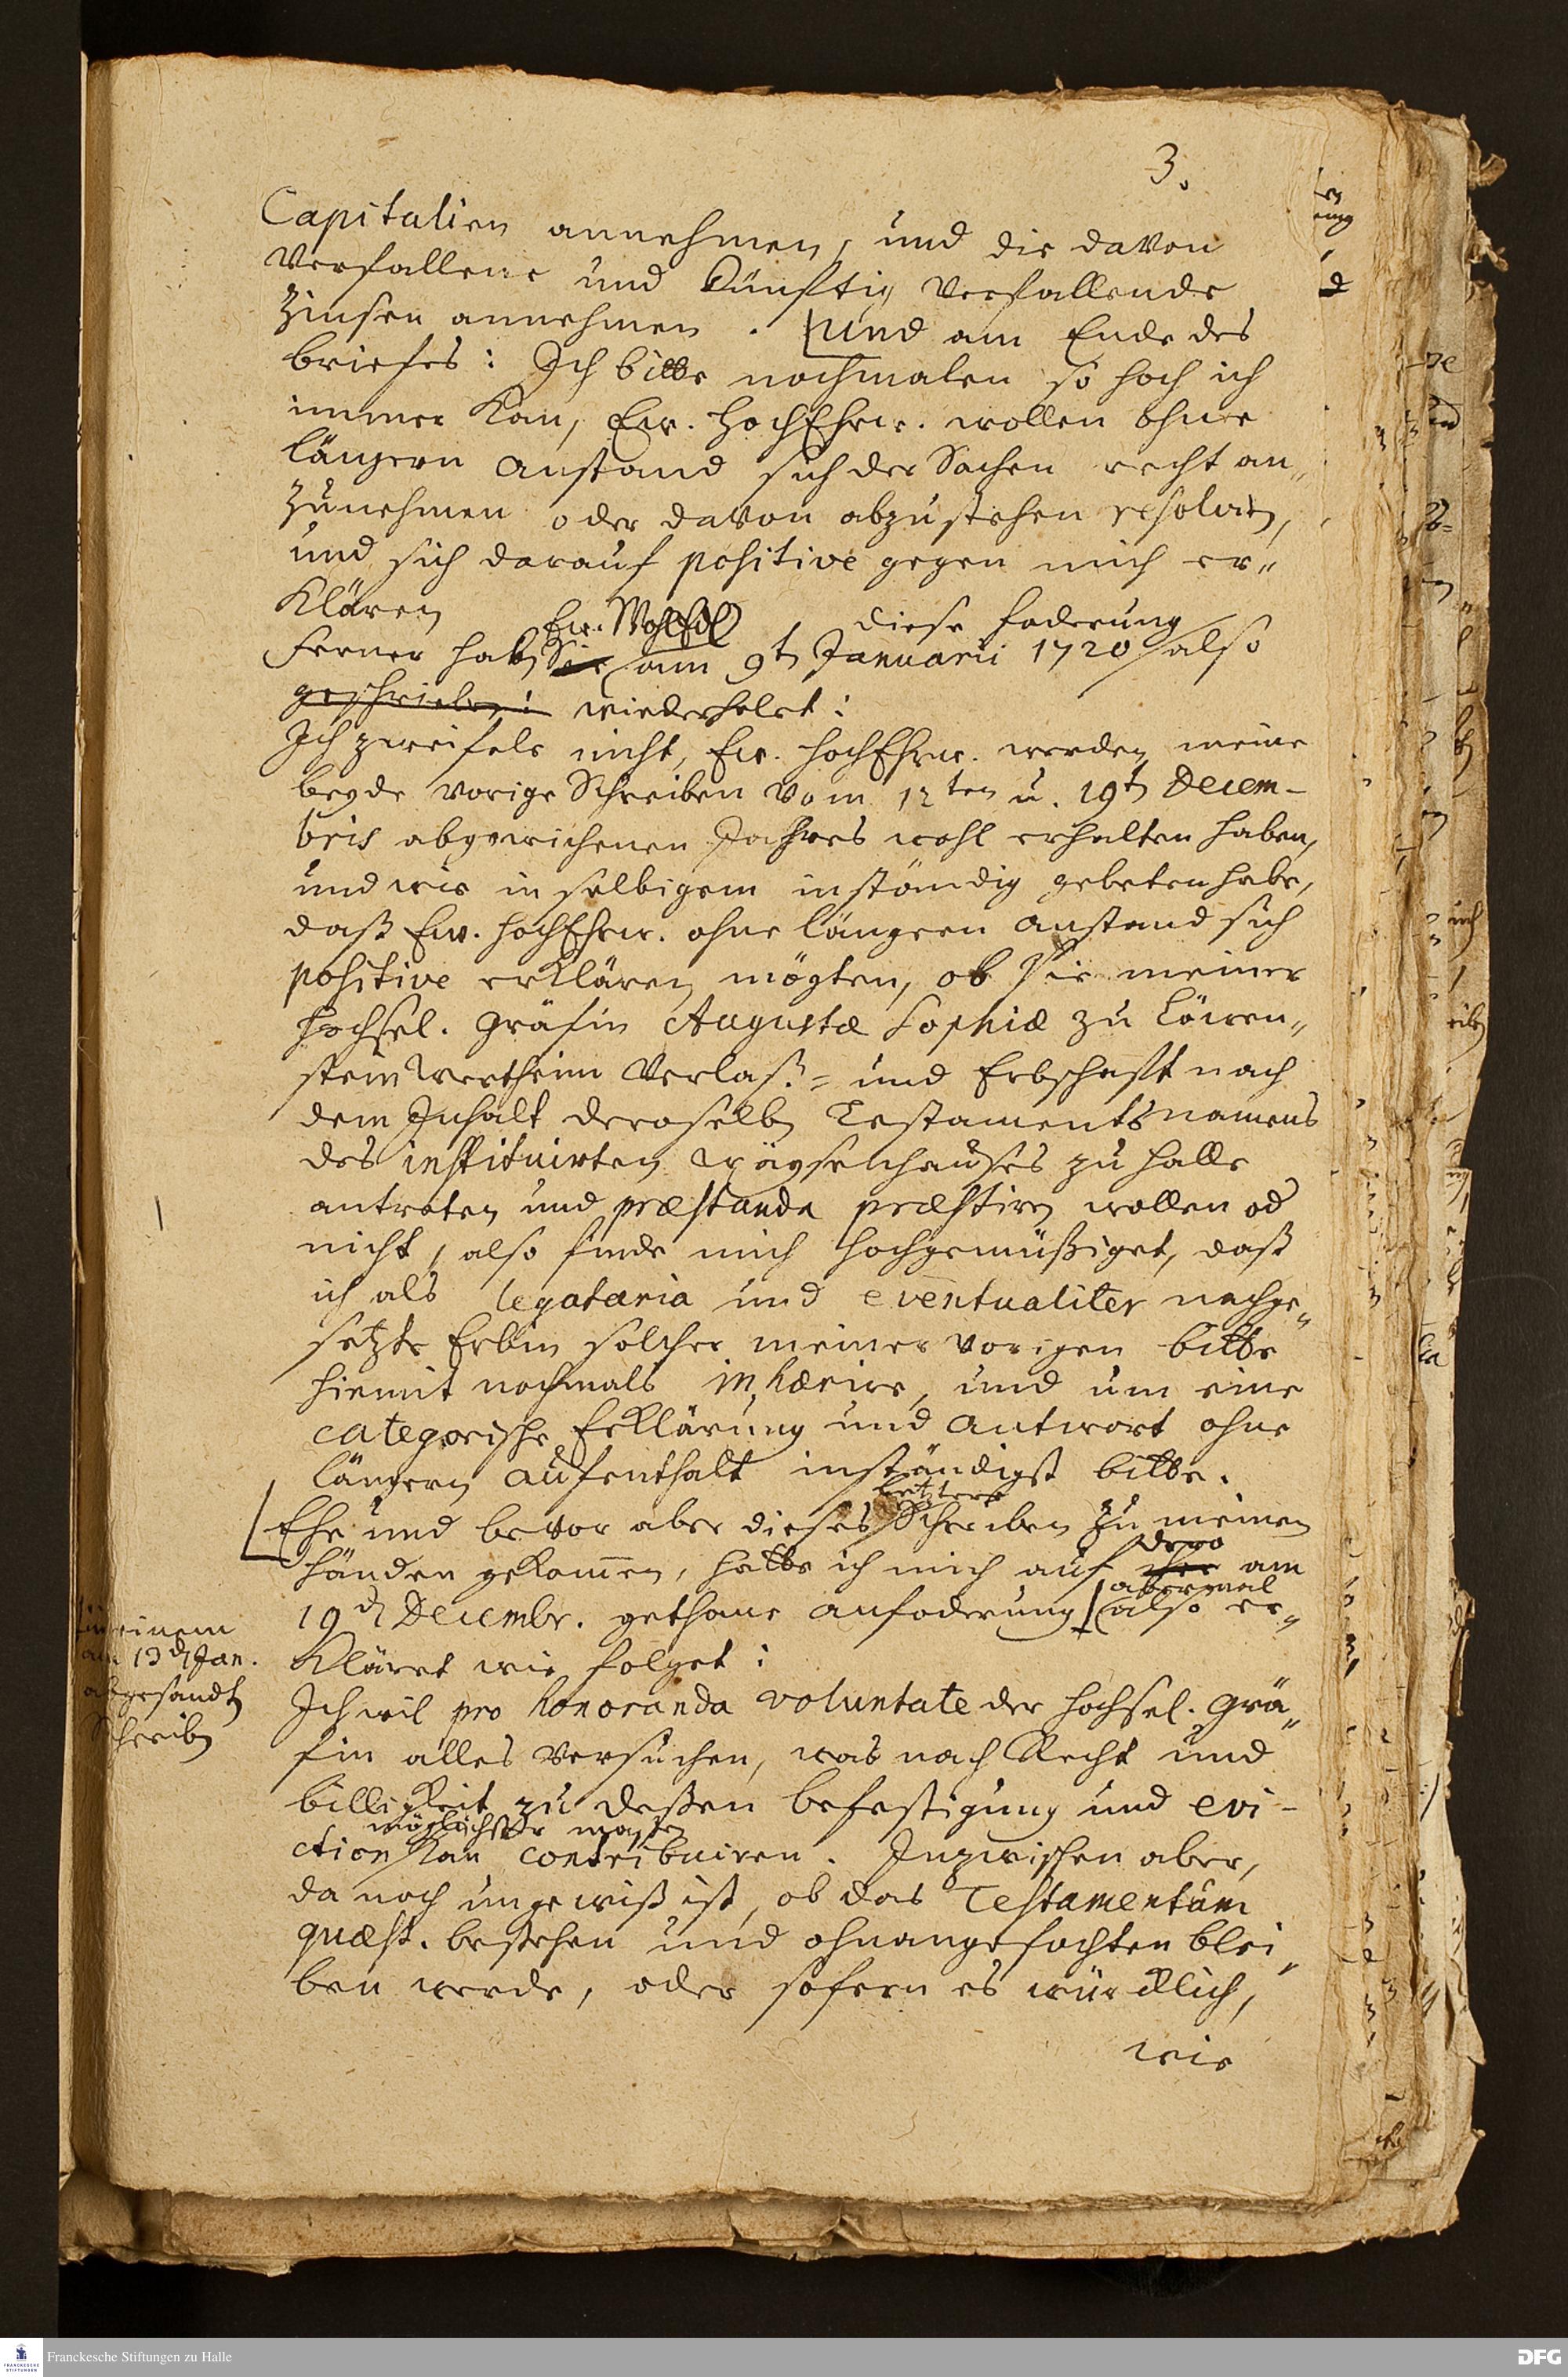 3.
Capitalien annehmen, und die davon
verfallene und künftig verfallende
Zinsen annehmen. [und am Ende des
briefes: Ich bitte nochmalen so hoch ich
immer kan, Ew. HochEhrw. wollen ohne
längern Anstand sich der Sachen recht an„
zunehmen oder davon abzustehen resolvirn,
und sich darauf positive gegen mich er„
klären
Ew. WohlEdl diese foderung
Ferner habn Sie am 9tn Januarii 1720 also
geschriebn: wiederholet:
Ich zweifele nicht, Ew. HochEhrw. werden meine
beyde vorige Schreiben vom 12ten u. 19tn Decem-
bris abgewichenen Jahres wohl erhalten haben,
und wie in selbigem inständig gebeten habe,
daß Ew. HochEhrw. ohne längern Anstand sich
positive erklären mögten, ob sie meiner
hochsel. Gräfin Augustæ Sophiæ zu Löwen„
stein Wertheim Verlaß- und Erbschafft nach
dem Inhalt deroselbn Testaments namens
des instituirten Wäysenhauses zu Halle
antreten und præstanda præstiren wollen od
nicht, also finde mich hochgemüßiget, daß
ich als legataria und eventualiter nachge„
setzte Erbin solcher meiner vorigen bitte
hiemit nochmals inhærire, und um eine
categorische Erklärung und Antwort ohne
längern aufenthalt inständigst bitte.
letztere
[Ehe und bevor aber dieses Schreiben zu meinen
dero
händen gekommen, hatte ich mich auf am
abermal
19dn Decembr. gethane anfoderung also er„
in einem
am 13dn Jan.
abgesandtn
Schreibn
kläret wie folget:
Ich wil pro honoranda voluntate der hochsel. Grä„
fin alles versuchen, was nach Recht und
billigkeit zu deßen befestigung und evi-
möglichster maßen
ction kan contribuiren. Inzwischen aber,
da noch ungewiß ist, ob das Testamentum
quæst. bestehen und ohnangefochten blei„
ben werde, oder sofern es würcklich,
wie
Franckesche Stiftungen zu Halle
DFG